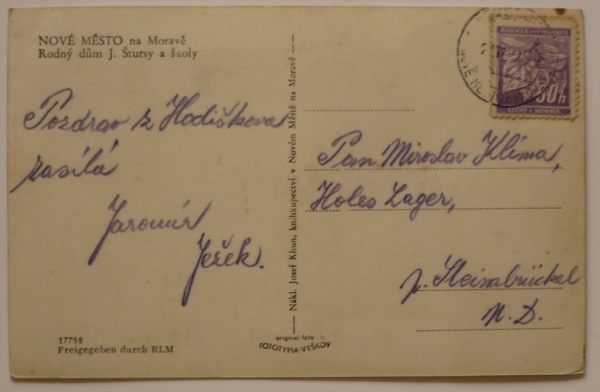 NOVÉ MĚSTO na Moravě
Rodný dům J. Štursy a školy
Pozdrav z Hodiškova
zasílá
Jaromír
Ježek.
Nákl. Josef Khun, knihkupectví v Novém Městě na Moravě
Pan Miroslav Klíma,
Holes Lager,
p. Steinabrückel
N. D.
17758
Freigegeben durch RLM
original foto
FOTOTYPIA-VYŠKOV